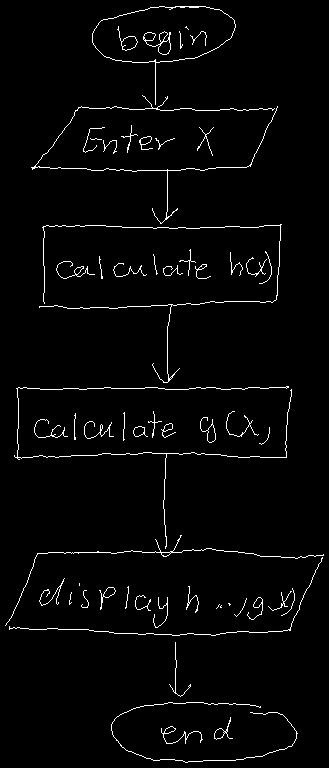 begin
Enter X
calculate h(x)
calculate g(x,
display h ..,g x)
end